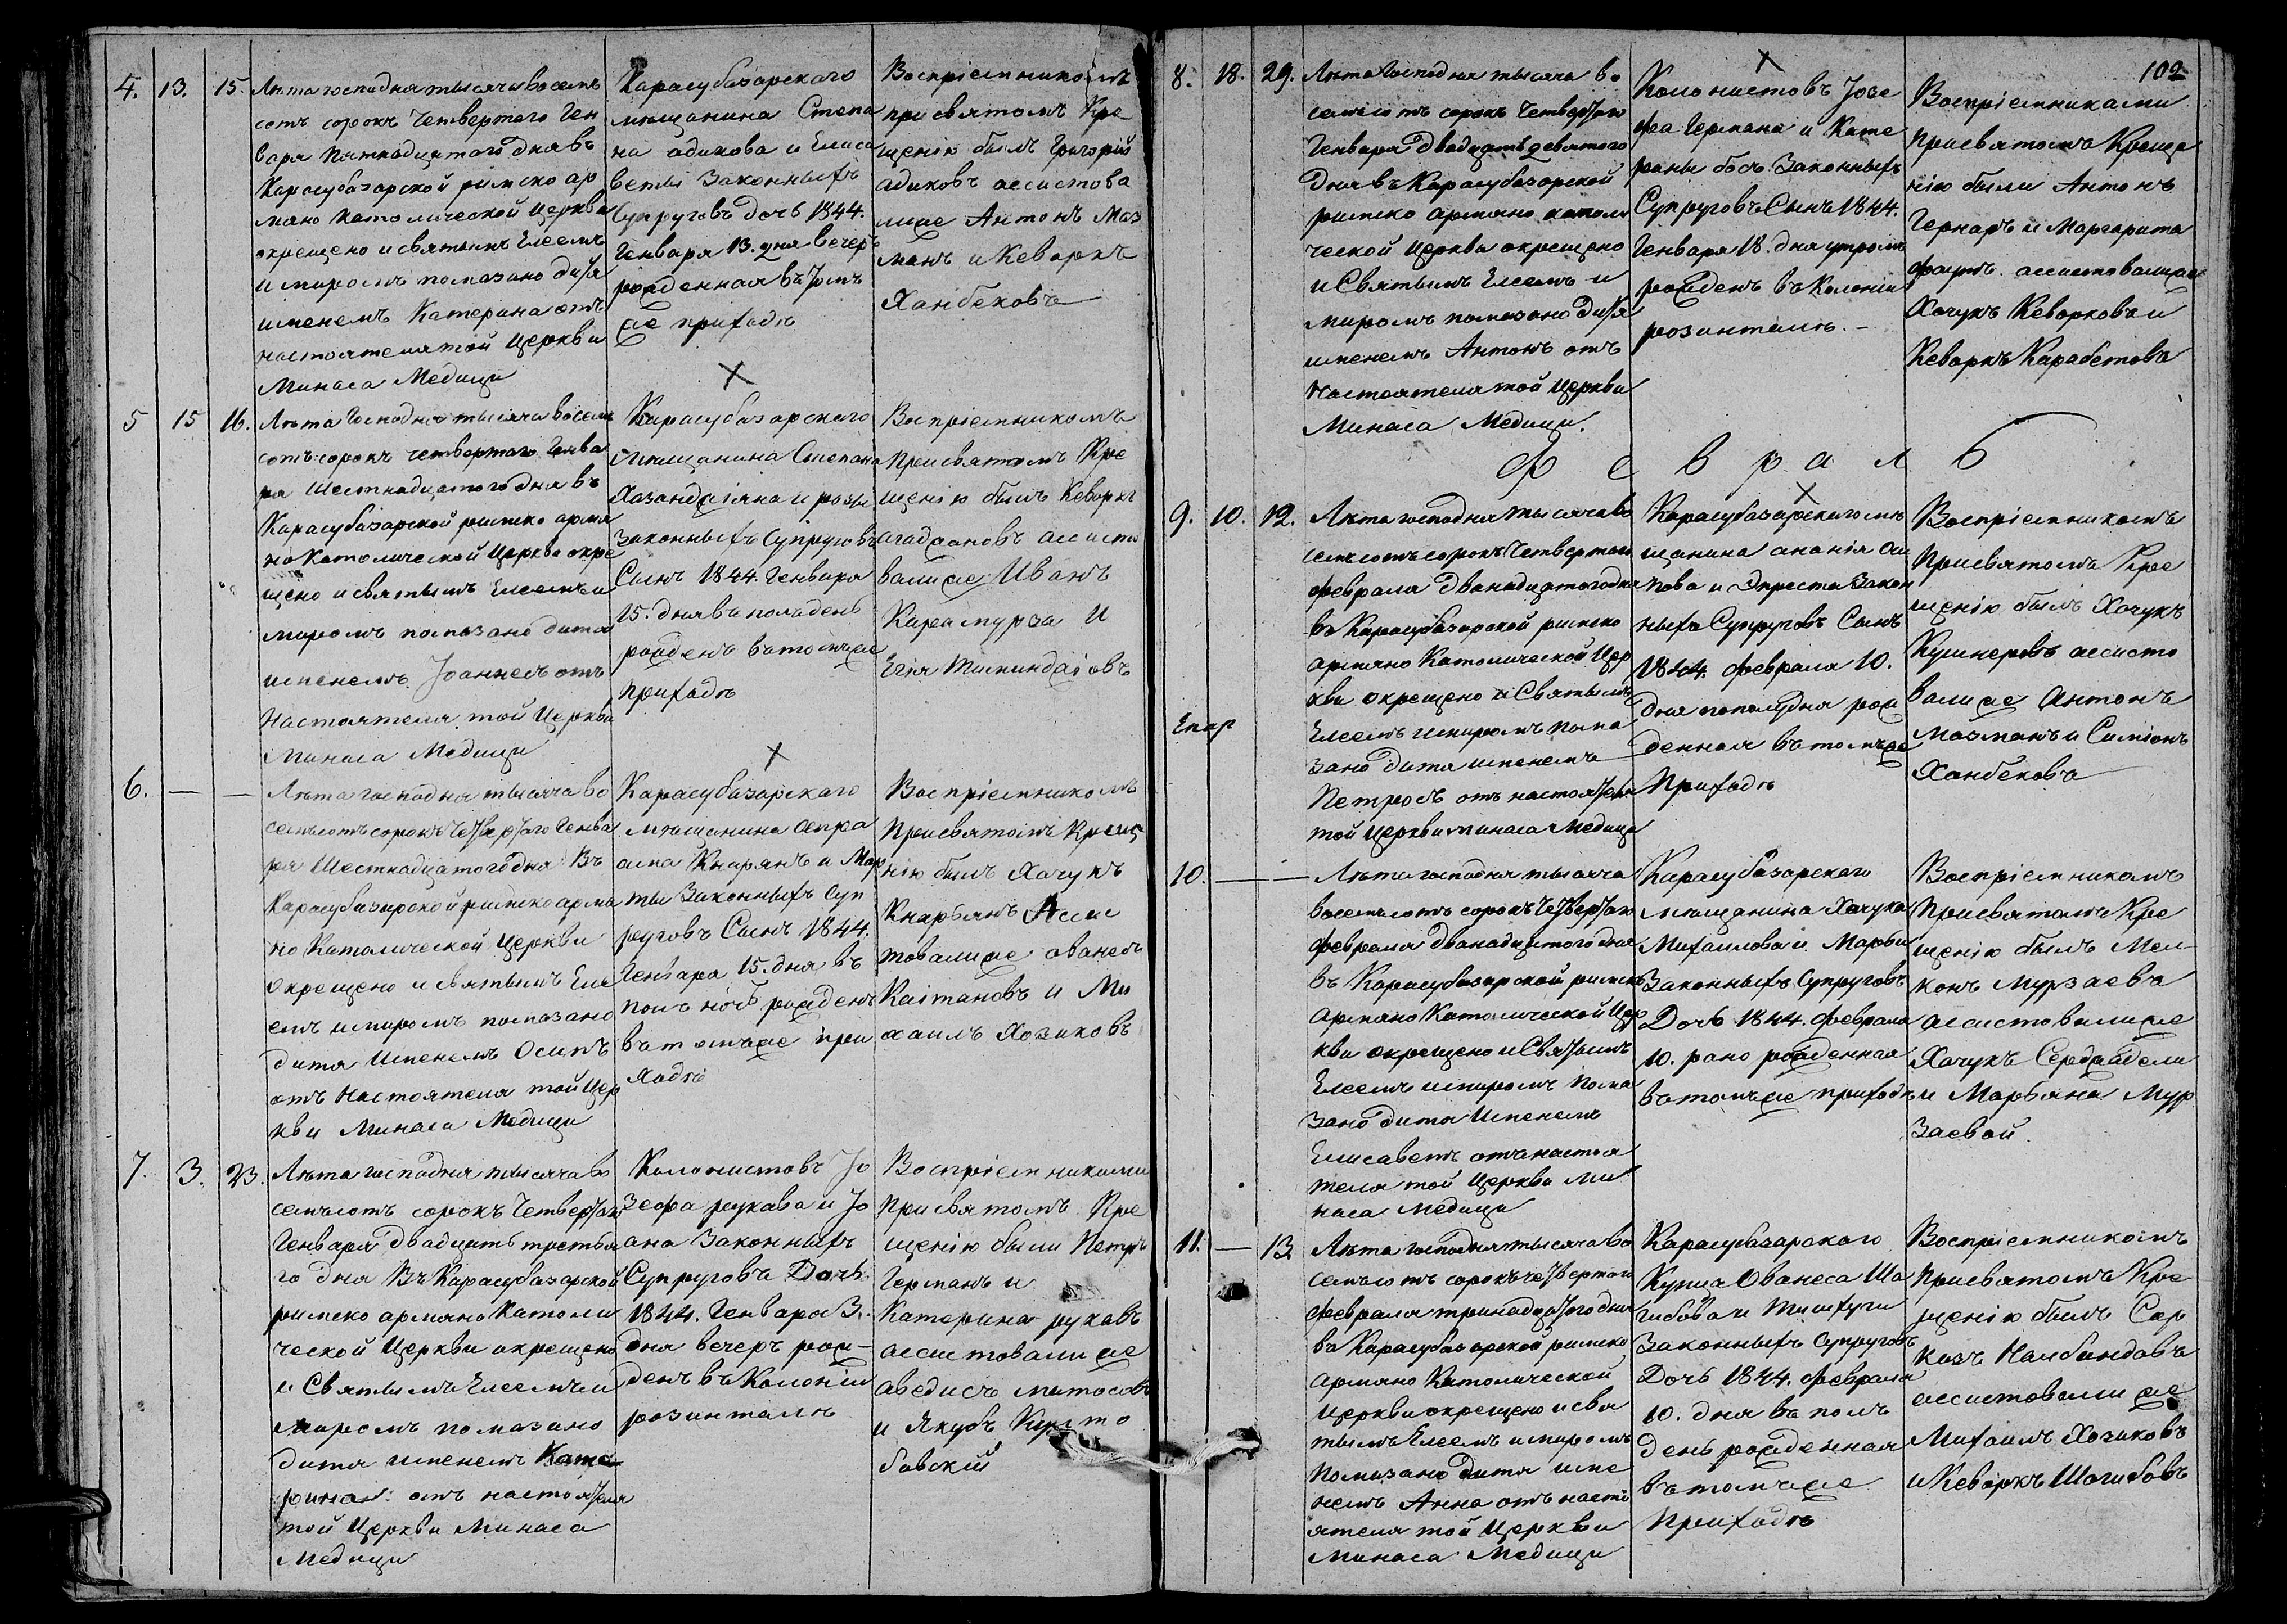 4. 13. 15.
Лѣта господня тысяча восемь
сотъ сорокъ Четвертого Ген
варя Пятнадцатого дня въ
Карасубазарской римско ар
мяно католической Церкви
окрещено и святымъ Елеемъ
и миромъ помазано дитя
именемъ Катерина отъ
настоятеля той Церкви
Минаса Медици
Карасубазарскаго
мѣщанина Степа
на адикова и Елиса
веты Законныхъ
Супруговъ дочь 1844.
Генваря 13. дня вечеръ
рожденная въ томъ
же приходѣ
Воспріемникомъ
при святомъ Кре
щеніи былъ Григорій
адиковъ ассистова
лиже Антонъ Маз
манъ и Кеворкъ
Ханбековъ
5 15 16.
Лѣта Господня тысяча восемь
сотъ сорокъ четвертого Генва
ря Шестнадцатого дня въ
Карасубазарской римско армя
но Католической Церкви окре
щено и святымъ Елеемъ и
миромъ помазано дитя
именемъ Іоаннесъ отъ
Настоятеля той Церкви
Минаса Медици
Карасубазарскаго
Мѣщанина Степана
Хазанджіяна и розы
Законныхъ Супруговъ
Сынъ 1844. Генваря
15. дня въ полъ день
рожденъ въ томъ же
приходѣ
Воспріемникомъ
При святомъ Кре
щенію былъ Кеворкъ
агаджановъ ассисто
вали же Иванъ
Карамурза И
Егія Тининджіовъ
6. — —
Лѣта господня тысяча во
семьсотъ сорокъ Четвертаго Генва
ря Шестнадцатого дня Въ
Карасубазарской римско армя
но Католической Церкви
Окрещено и святымъ Еле
емъ и миромъ помазано
дитя Именемъ Осипъ
отъ Настоятеля той Цер
кви Минаса Медици
Карасубазарскаго
мѣщанина апра
ама Кнарянъ и Мар
ты Законныхъ Суп
руговъ Сынъ 1844.
Генваря 15. дня въ
полъ ночь рожденъ
въ томъ же при
ходѣ
Воспріемникомъ
При святомъ Крещ
нію былъ Хачукъ
Кнарьянъ Асси
товали же ованесъ
Каітановъ и Ми
хаилъ Хозиковъ
7. 3. 23.
Лѣта господня тысяча во
семьсотъ сорокъ Четвертого
Генваря двадцать третья
го дня Въ Карасубазарской
римско армяно Католи
ческой Церкви окрещено
и Святымъ Елеемъ и
миромъ помазано
дитя именемъ Кате
рина: отъ настоятеля
той Церкви Минаса
Медици
Колонистовъ Іо
зефа рукава и Іо
ана Законныхъ
Супруговъ Дочь
1844. Генваря 3.
дня вечеръ рож-
денъ въ Колоніи
розинталѣ
Воспріемниками
При святомъ Кре
щенію были Петръ
Германъ и
Катерина рукавъ
ассистовали же
аведисъ матосовъ
и Якубъ
бовскій
102
8. 18. 29.
Лѣта Господня тысяча во
семьсотъ сорокъ Четвертого
Генваря двадцать девятого
Дня въ Карасубазарской
римско армяно католи
ческой Церкви окрещено
и Святымъ Елеемъ и
миромъ помазано дитя
именемъ Антонъ отъ
Настоятеля той Церкви
Минаса Медици.
Колонистовъ Іозе
фа Германа и Кате
рины Законныхъ
Супруговъ Сынъ 1844.
Генваря 18. дня утромъ
рожденъ въ Колоніи
розинталѣ. —
Воспріемниками
При святомъ Креще
нію были Антонъ
Гернаръ и Маргарита
фаутъ ассистовали же
Хачукъ Кеворковъ и
Кеворкъ Карабетовъ
Февраль
9. 10. 12.
Лѣта господня тысяча во
семьсотъ сорокъ Четвертого
февраля двѣнадцатого дня
въ Карасубазарской римско
армяно Католической Цер
кви окрещено и Святымъ
Елеемъ и миромъ пома
зано дитя именемъ
Петросъ отъ настоятеля
той Церкви минаса Медици
Карасубазарскаго мѣ
щанина ананія Оси
пова и Эприста Закон
ныхъ Супруговъ Сынъ
1844. февраля 10.
дня по полудня рож
денная въ томъ же
Приходѣ
Воспріемникомъ
При святомъ Кре
щенію былъ Хачукъ
Кушнеровъ ассисто
вали же Антонъ
мазманъ и Симіонъ
Ханбековъ
Епар
10. — —
Лѣта господня тысяча
восемьсотъ сорокъ Четвертого
февраля двѣнадцатого дня
въ Карасубазарской римско
Армяно Католической Цер
кви окрещено и Святымъ
Елеемъ и миромъ пома
зано дитя Именемъ
Елисаветъ отъ настоя
теля той Церкви Ми
наса Медици
Карасубазарскаго
мѣщанина Хачука
Михаилова и Марьи
Законныхъ Супруговъ
Дочь 1844. февраля
10. рано рожденная
въ томъ же приходѣ
Воспріемникомъ
При святомъ Кре
щенію былъ Мел-
конъ Мурзаевъ
ассистовали же
Хачукъ Сердабдели
и Марьяна Мур
заевой.
11. — 13
Лѣта господня тысяча во
семьсотъ сорокъ четвертого
февраля тринадцатого дня
въ Карасубазарской римско
армяно Католической
Церкви окрещено и свя
тымъ Елеемъ и миромъ
Помазано дитя име
немъ Анна отъ насто
ятеля той Церкви
Минаса Медици
Карасубазарского
Купца Ованеса Ша
гибова и Тишхуги
Законныхъ Супруговъ
Дочь 1844. февраля
10. дня въ полъ
день рожденная
въ томъ же
Приходѣ
Воспріемникомъ
При святомъ Кре
щенію былъ Сар
кизъ Налбандовъ
ассистовали же
Михаилъ Хозиковъ
и Кеворкъ Шагибовъ